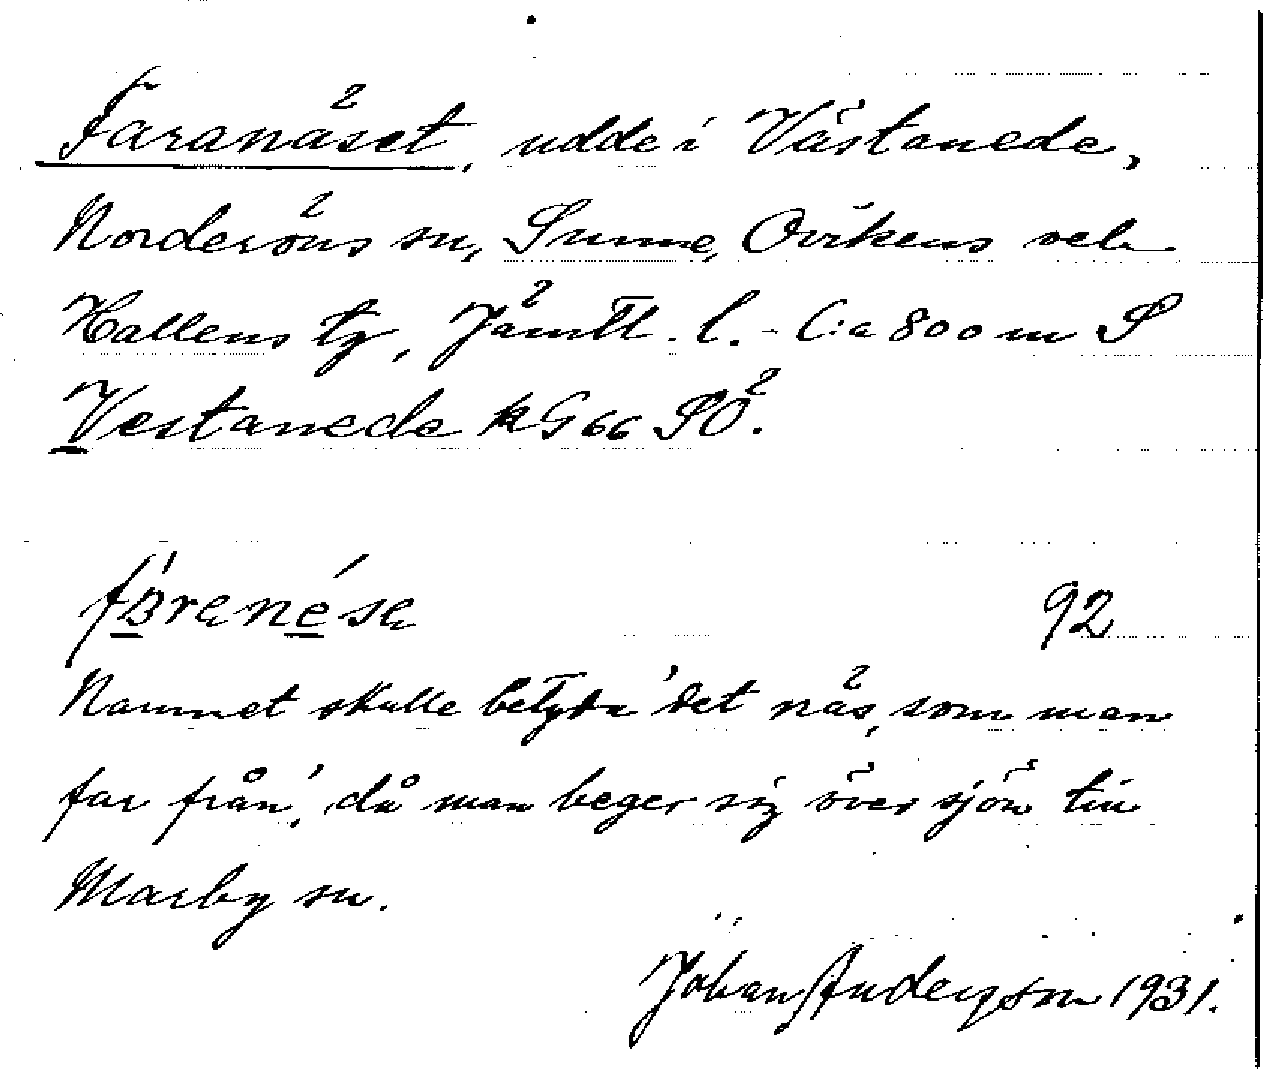 Faranäset, udde i Västanede,
Norderöns sn, Sunne, Ovikens och
Hallens tg, Jämtl. l. - C:a 800 m S
Vestanede kG66 SÖ.
92
Namnet skulle betyda 'det näs, som man
far från', då man beger sig över sjön till
Marby sn.
Johan Anderzson 1931.